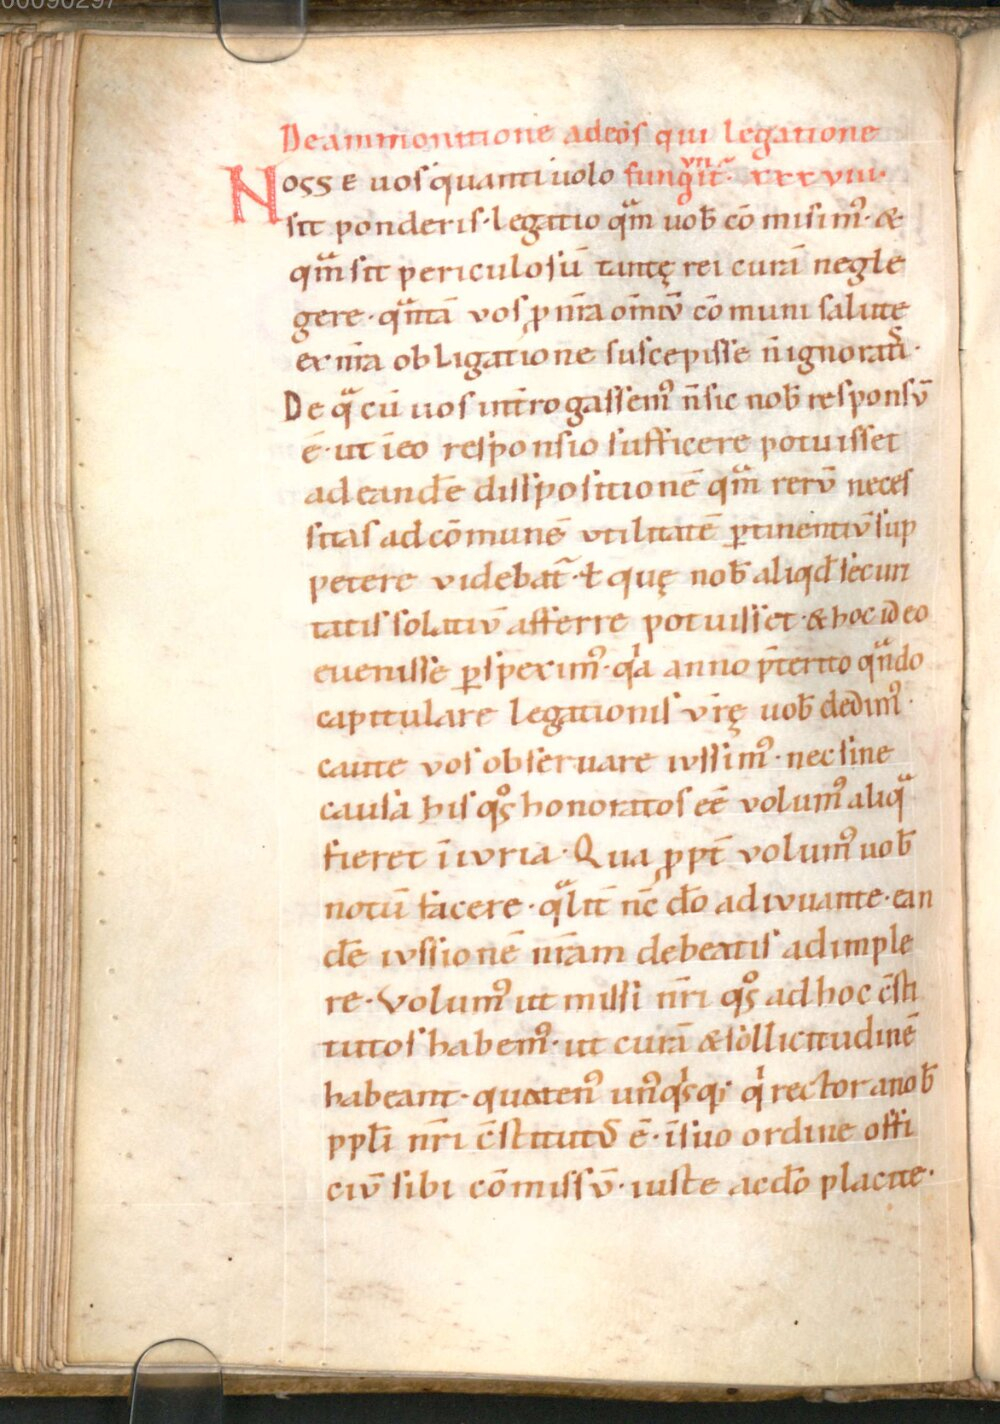 00090297
De ammonitione ad eos qui legatione
Nosse uos quanti uolo fung̅ūn̅t̅. xxxviii.
sit ponderis. legatio quā uob̅ cōmisim᾿. &
quā sit periculosū tantę rei curā negle
gere. qͣntā vos ꝓ nr̅a om̅iv̅ cōmuni salute
ex nr̅a obligatione suscepisse n̅ ignoratis.
De qͣ cū uos int̅rogassem᾿ n̅ sic nob̅ responsv̅
ē. ut ī eo responsio sufficere potuisset
ad eand̅e dispositionē qͣm rerv̅ neces
sitas ad cōmunē vtilitatē ꝑtinentiv̅ sup
petere videbat̅. ł quę nob̅ aliqd̅ securi
tatis solativ̅ afferre potuisset. & hoc id eo
euenisse ꝑspexim᾿. qͥa anno p̅terito qͣndo
capitulare legationis vr̅ę uob̅ dedim᾿.
caute vos obseruare ivssim᾿. nec sine
causa his qͦs honoratos eē volum᾿ aliqͣ
fieret īivria. Qua ꝓpt̅ volum᾿ uob̅
notū facere. qͣlit̅ nc̅ do̅ adivuante. ean
de̅ ivssionē nr̅am debeatis adimple
re. Volum᾿ ut missi nr̅i qͦs ad hoc c̅sti
tutos habem᾿. ut curā & sollicitudinē
habeant. quaten᾿ un᾿qͥsq; qͥ rector a nob̅
ppl̅i nr̅i c̅stitutus ē. ī suo ordine offi
civ̅ sibi cōmissv̅. iuste ac do̅ placite.